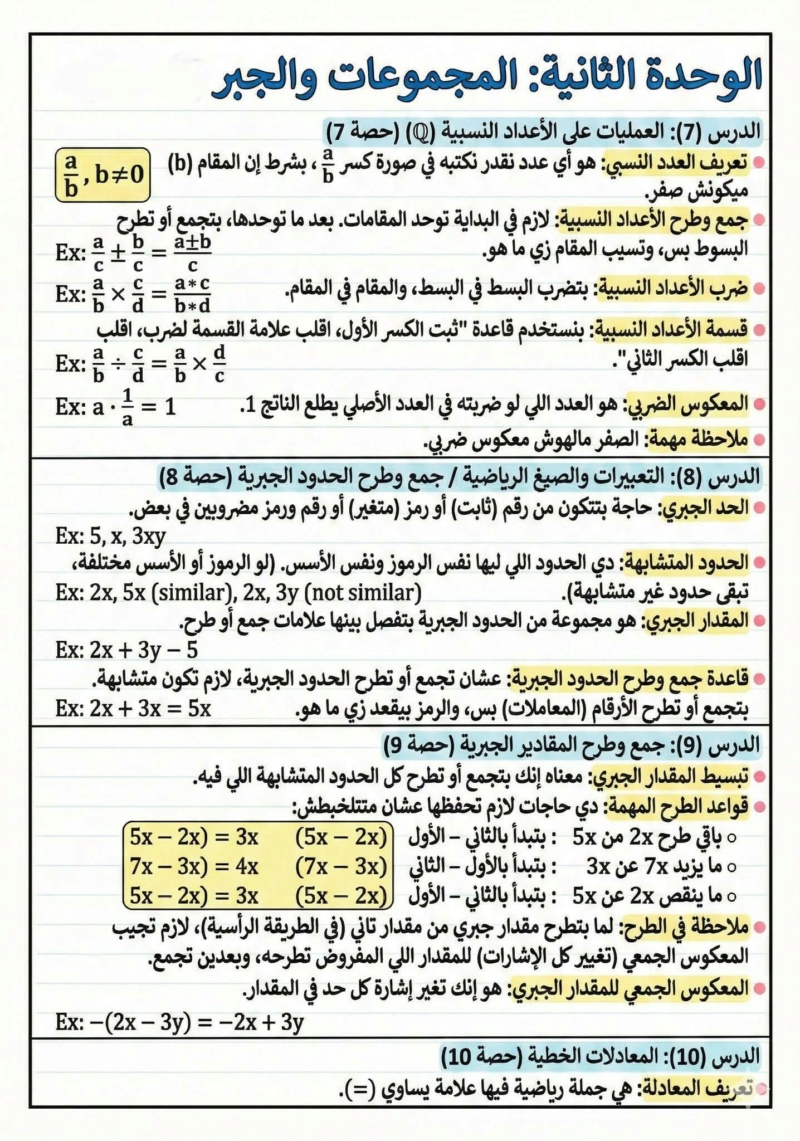 الوحدة الثانية: المجموعات والجبر
الدرس (7): العمليات على الأعداد النسبية (ℚ) (حصة 7)
تعريف العدد النسبي: هو أي عدد نقدر نكتبه في صورة كسر a/b ، بشرط إن المقام (b)
a/b , b≠0
ميكونش صفر.
جمع وطرح الأعداد النسبية: لازم في البداية توحد المقامات. بعد ما توحدها، بتجمع أو تطرح
البسوط بس، وتسيب المقام زي ما هو.
Ex: a/c ± b/c = a±b/c
ضرب الأعداد النسبية: بتضرب البسط في البسط، والمقام في المقام.
Ex: a/b × c/d = a*c/b*d
قسمة الأعداد النسبية: بنستخدم قاعدة "ثبت الكسر الأول، اقلب علامة القسمة لضرب، اقلب
اقلب الكسر الثاني".
Ex: a/b ÷ c/d = a/b × d/c
المعكوس الضربي: هو العدد اللي لو ضربته في العدد الأصلي يطلع الناتج 1.
Ex: a · 1/a = 1
ملاحظة مهمة: الصفر مالهوش معكوس ضربي.
الدرس (8): التعبيرات والصيغ الرياضية / جمع وطرح الحدود الجبرية (حصة 8)
الحد الجبري: حاجة بتتكون من رقم (ثابت) أو رمز (متغير) أو رقم ورمز مضروبين في بعض.
Ex: 5, x, 3xy
الحدود المتشابهة: دي الحدود اللي ليها نفس الرموز ونفس الأسس. (لو الرموز أو الأسس مختلفة،
تبقى حدود غير متشابهة).
Ex: 2x, 5x (similar), 2x, 3y (not similar)
المقدار الجبري: هو مجموعة من الحدود الجبرية بتفصل بينها علامات جمع أو طرح.
Ex: 2x + 3y − 5
قاعدة جمع وطرح الحدود الجبرية: عشان تجمع أو تطرح الحدود الجبرية، لازم تكون متشابهة.
بتجمع أو تطرح الأرقام (المعاملات) بس، والرمز بيقعد زي ما هو.
Ex: 2x + 3x = 5x
الدرس (9): جمع وطرح المقادير الجبرية (حصة 9)
تبسيط المقدار الجبري: معناه إنك بتجمع أو تطرح كل الحدود المتشابهة اللي فيه.
قواعد الطرح المهمة: دي حاجات لازم تحفظها عشان متتلخبطش:
باقي طرح 2x من 5x : بتبدأ بالثاني – الأول (5x − 2x) 5x − 2x) = 3x
ما يزيد 7x عن 3x : بتبدأ بالأول – الثاني (7x − 3x) 7x − 3x) = 4x
ما ينقص 2x عن 5x : بتبدأ بالثاني – الأول (5x − 2x) 5x − 2x) = 3x
ملاحظة في الطرح: لما بتطرح مقدار جبري من مقدار تاني (في الطريقة الرأسية)، لازم تجيب
المعكوس الجمعي (تغيير كل الإشارات) للمقدار اللي المفروض تطرحه، وبعدين تجمع.
المعكوس الجمعي للمقدار الجبري: هو إنك تغير إشارة كل حد في المقدار.
Ex: −(2x − 3y) = −2x + 3y
الدرس (10): المعادلات الخطية (حصة 10)
تعريف المعادلة: هي جملة رياضية فيها علامة يساوي (=).